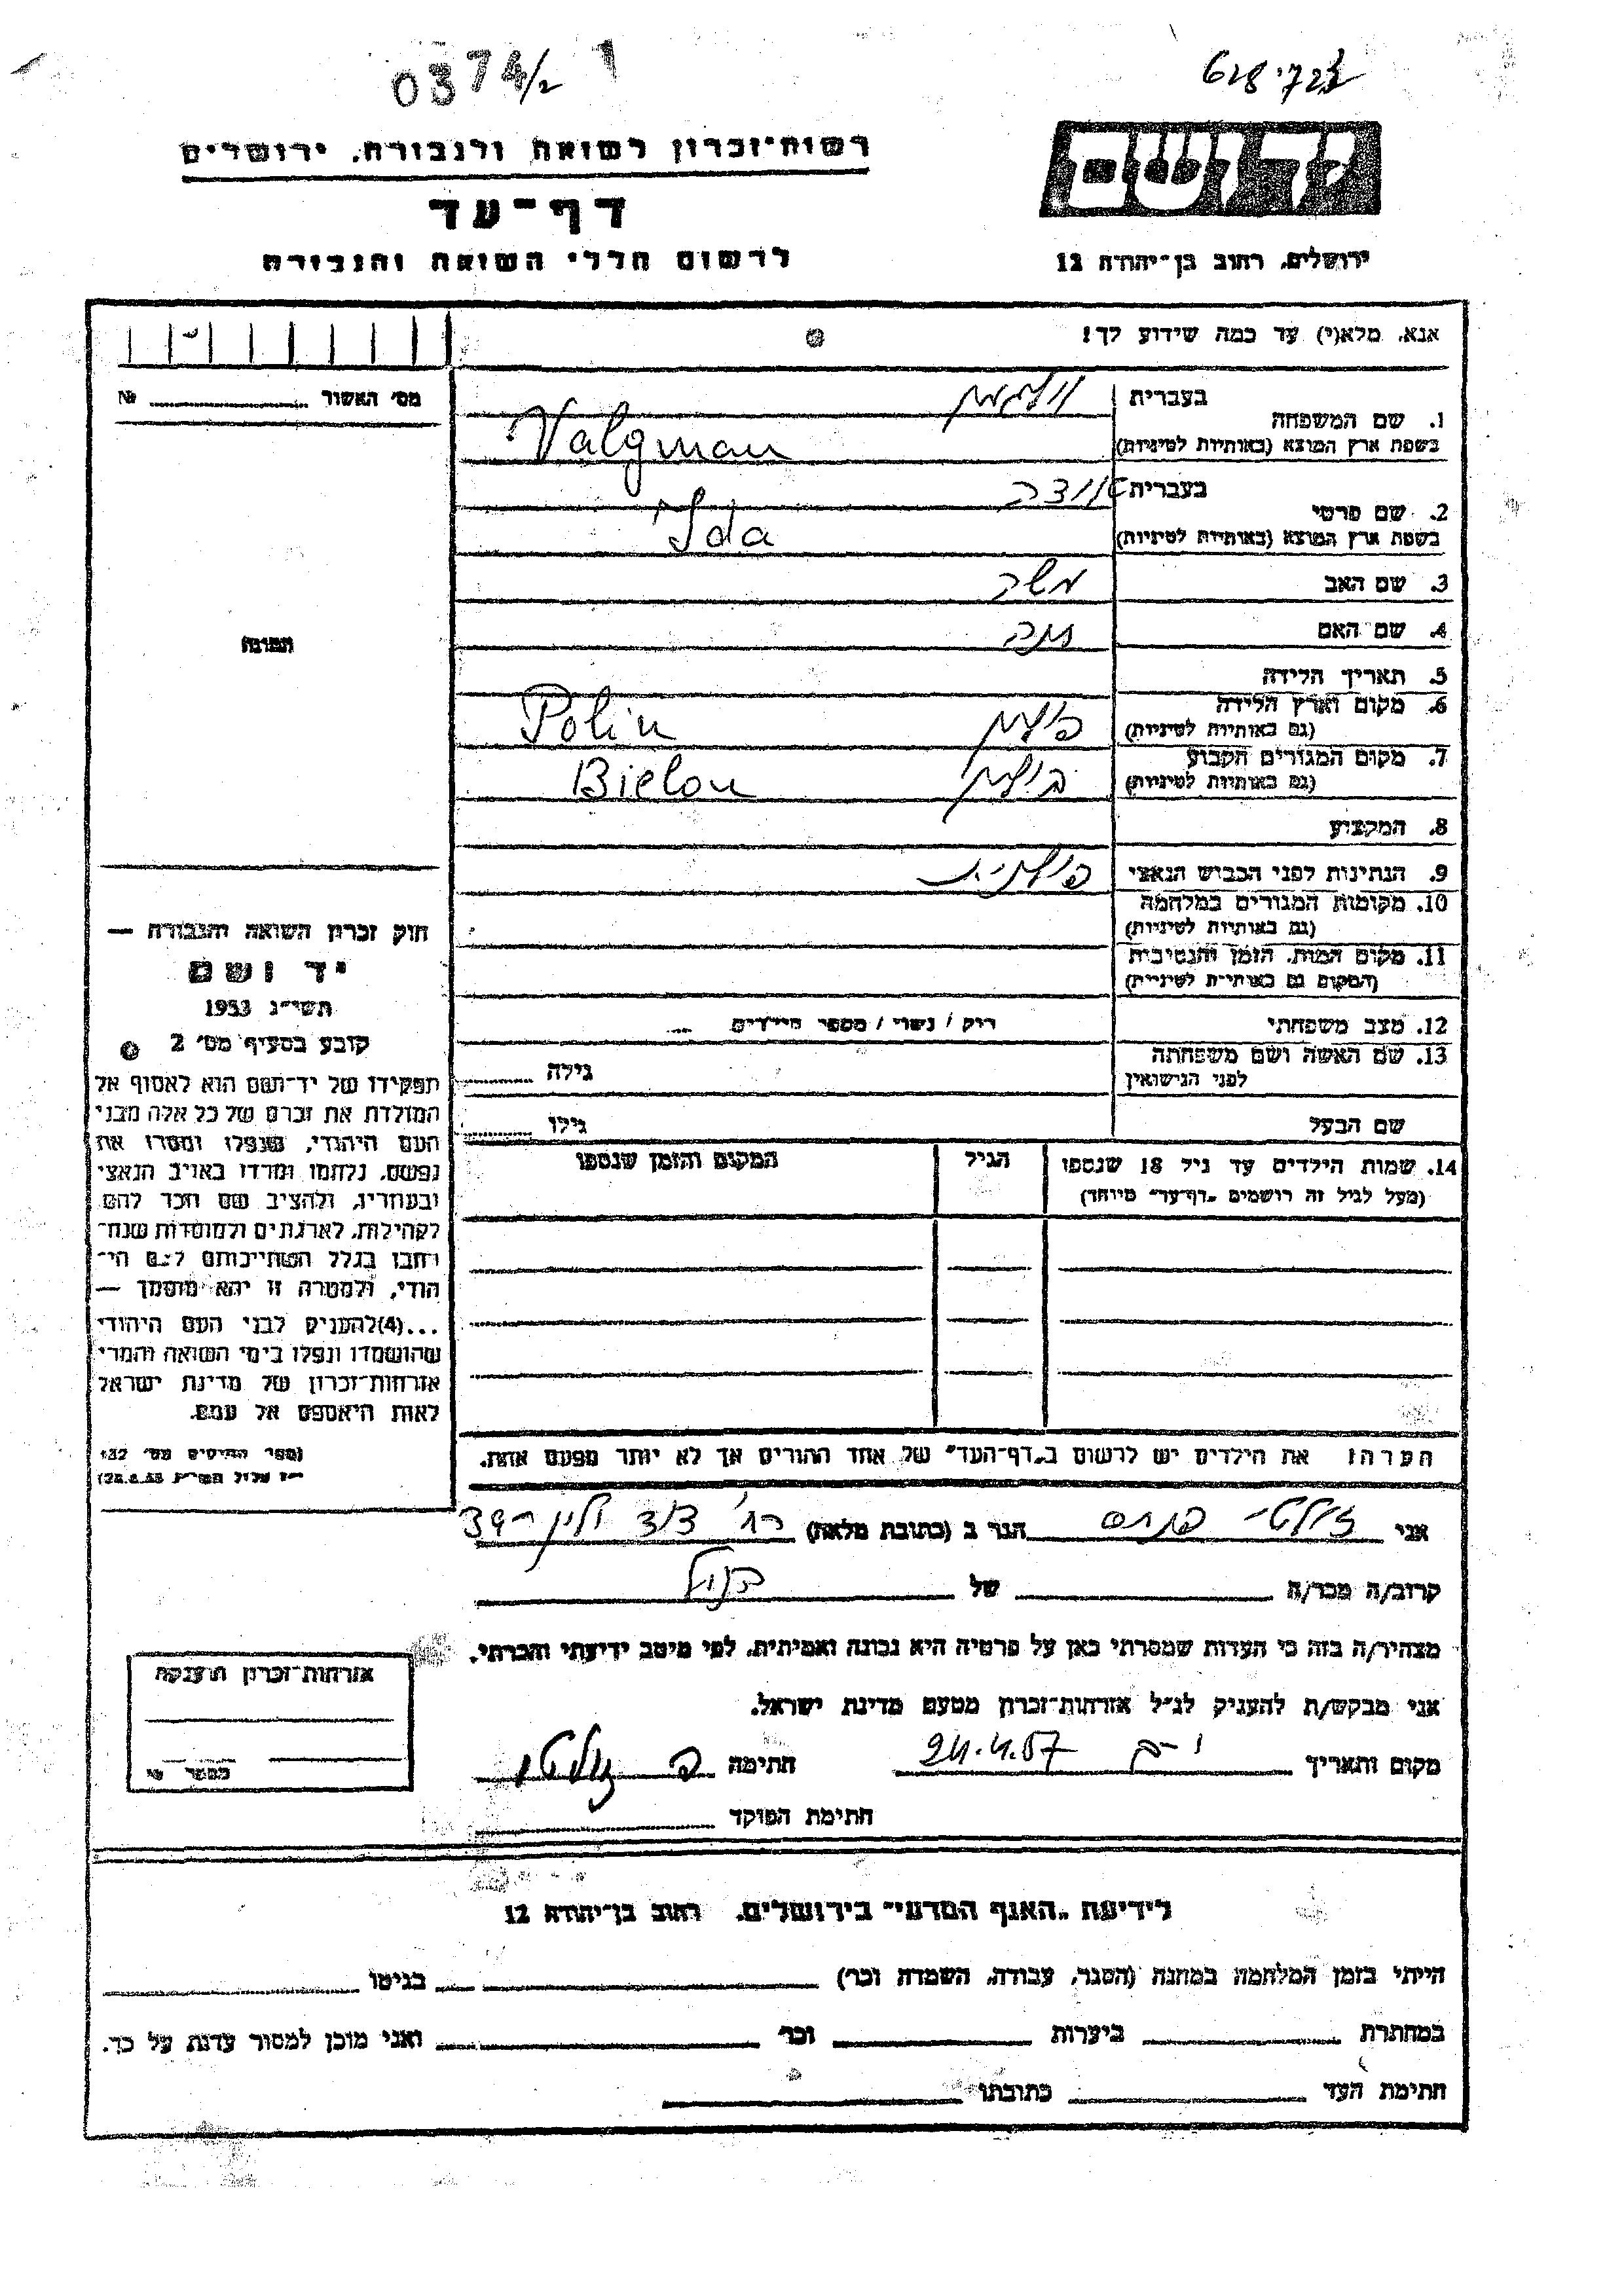 0374/2 1
רשות־זכרון לשואה ולגבורה, ירושלים
דף־עד
לרשום חללי השואה והגבורה
יד ושם
ירושלים, רחוב בן־יהודה 12
אנא, מלא(י) עד כמה שידוע לך!
מס׳ האשור № 
1. שם המשפחה
בעברית ולגמן
בשפת ארץ המוצא (באותיות לטיניות) Valgman
2. שם פרטי
בעברית
בשפת ארץ המוצא (באותיות לטיניות) Ida
3. שם האב משה
4. שם האם חנה
5. תאריך הלידה
6. מקום וארץ הלידה פולין Polin
(גם באותיות לטיניות)
7. מקום המגורים הקבוע Bielon
(גם באותיות לטיניות)
8. המקצוע
9. הנתינות לפני הכבוש הנאצי פולנית
10. מקומות המגורים במלחמה
(גם באותיות לטיניות)
11. מקום המות, הזמן והנסיבות
(המקום גם באותיות לטיניות)
12. מצב משפחתי רווק / נשוי / מספר הילדים
13. שם האשה ושם משפחתה
לפני הנישואין
גילה
שם הבעל גילו
14. שמות הילדים עד גיל 18 שנספו
(מעל לגיל זה רושמים „דף־עד״ מיוחד)
הגיל
המקום והזמן שנספו
הערה: את הילדים יש לרשום ב„דף־העד״ של אחד ההורים אך לא יותר מפעם אחת.
התמונה
חוק זכרון השואה והגבורה —
יד ושם
תשי״ג 1953
קובע בסעיף מס׳ 2
תפקידו של יד־ושם הוא לאסוף אל
המולדת את זכרם של כל אלה מבני
העם היהודי, שנפלו ומסרו את
נפשם, נלחמו ומרדו באויב הנאצי
ובעוזריו, ולהציב שם וזכר להם
לקהילות, לארגונים ולמוסדות שנח־
רבו בגלל השתייכותם לעם הי־
הודי, ולמטרה זו יהא מוסמך —
...(4)להעניק לבני העם היהודי
שהושמדו ונפלו בימי השואה והמרי
אזרחות־זכרון של מדינת ישראל
לאות היאספם אל עמם.
(ספר החוקים מס׳ 132
אני פנחס הגר ב (כתובת מלאה) רח׳
קרוב/ה מכר/ה של
מצהיר/ה בזה כי העדות שמסרתי כאן על פרטיה היא נכונה ואמיתית, לפי מיטב ידיעתי והכרתי.
אני מבקש/ת להעניק לנ״ל אזרחות־זכרון מטעם מדינת ישראל.
מקום ותאריך 24.4.57 חתימה
חתימת הפוקד
אזרחות־זכרון הוענקה
מספר
לידיעת „האגף המדעי״ בירושלים, רחוב בן־יהודה 12
הייתי בזמן המלחמה במחנה (הסגר, עבודה, השמדה וכו׳) בגיטו
במחתרת ביערות וכו׳ ואני מוכן למסור עדות על כך.
חתימת העד כתובתו